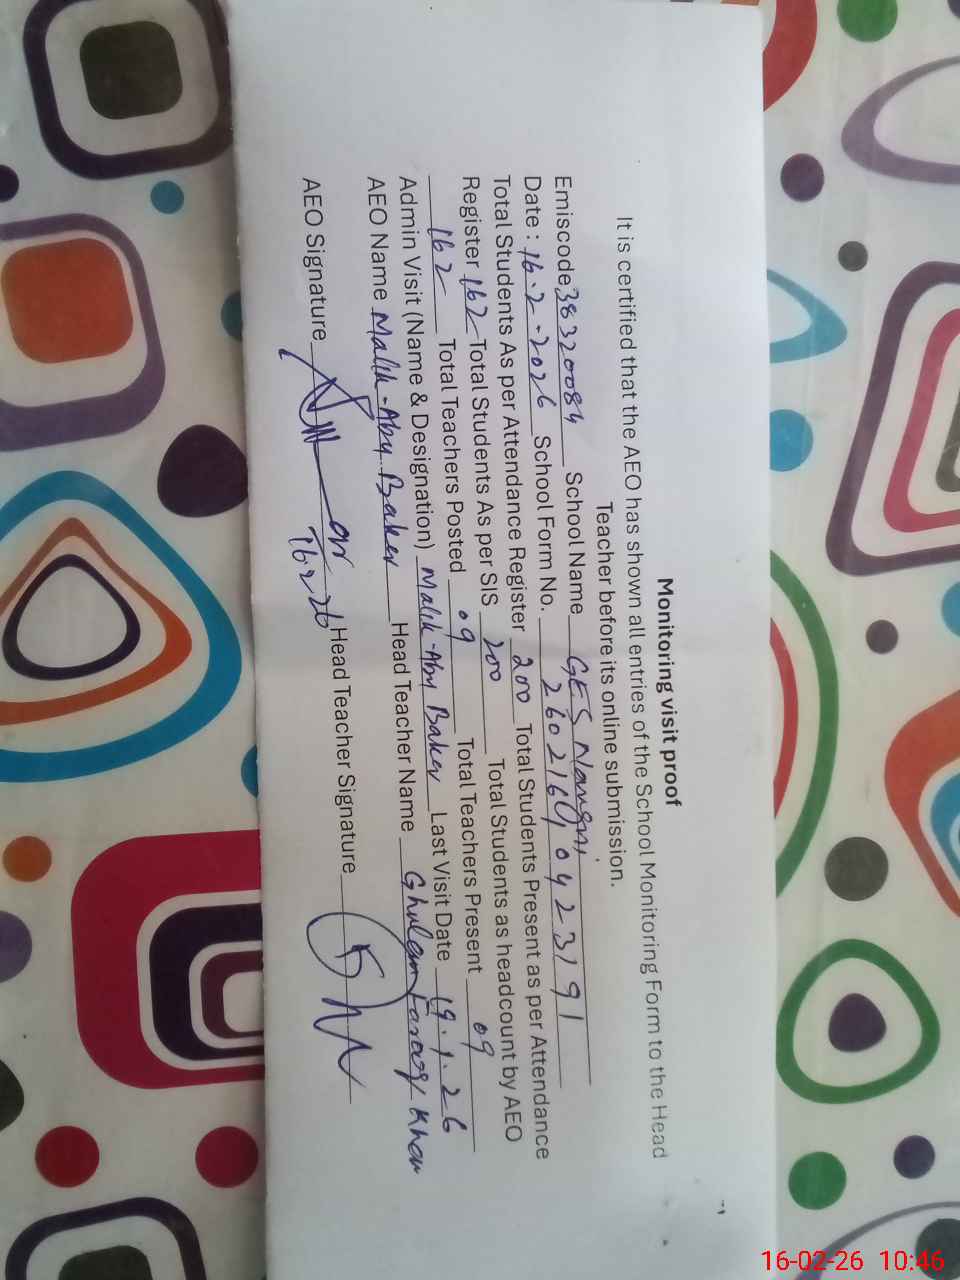 Monitoring visit proof
It is certified that the AEO has shown all entries of the School Monitoring Form to the Head
Teacher before its online submission.
Emiscode 38320084 School Name GES
Date : 16.2.2026 School Form No. 2602160423191
Total Students As per Attendance Register 200 Total Students Present as per Attendance
Register 162 Total Students As per SIS 200 Total Students as headcount by AEO
162 Total Teachers Posted 09 Total Teachers Present 09
Admin Visit (Name & Designation) Malik-Abu Baker Last Visit Date 19.1.26
AEO Name Malik-Abu Baker Head Teacher Name Ghulam Farooq Khan
AEO Signature 16.2.26 Head Teacher Signature
16-02-26 10:46